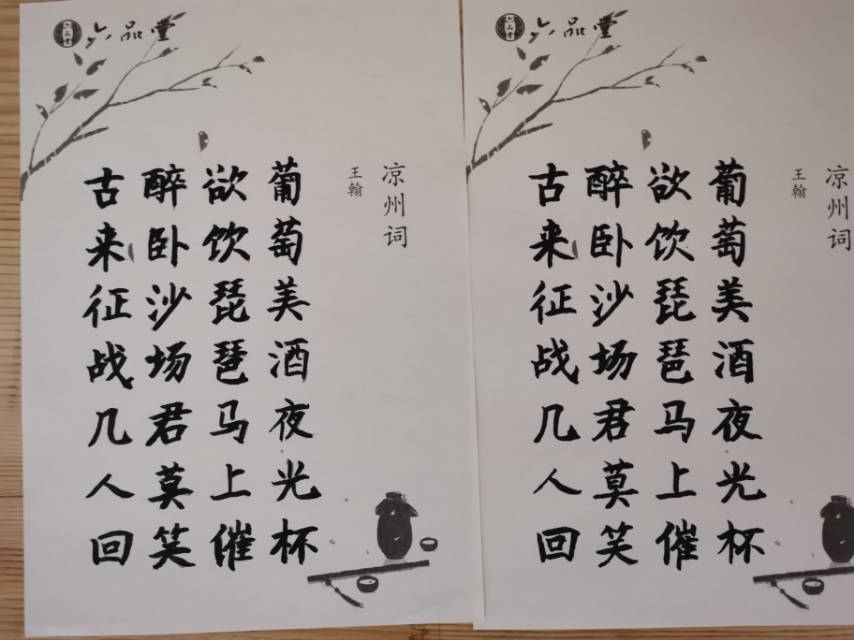 六品堂
凉州词
王翰
葡萄美酒夜光杯
欲饮琵琶马上催
醉卧沙场君莫笑
古来征战几人回
六品堂
凉州词
王翰
葡萄美酒夜光杯
欲饮琵琶马上催
醉卧沙场君莫笑
古来征战几人回